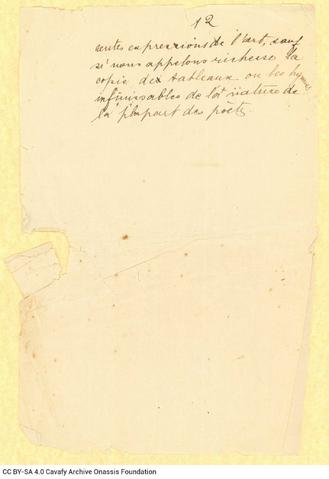 12
rentes expressions de l'art, sauf
si nous appelons richesse la
copie des tableaux ou les hymnes
infinissables de la nature de
la plupart des poëtes.
CC BY-SA 4.0 Cavafy Archive Onassis Foundation